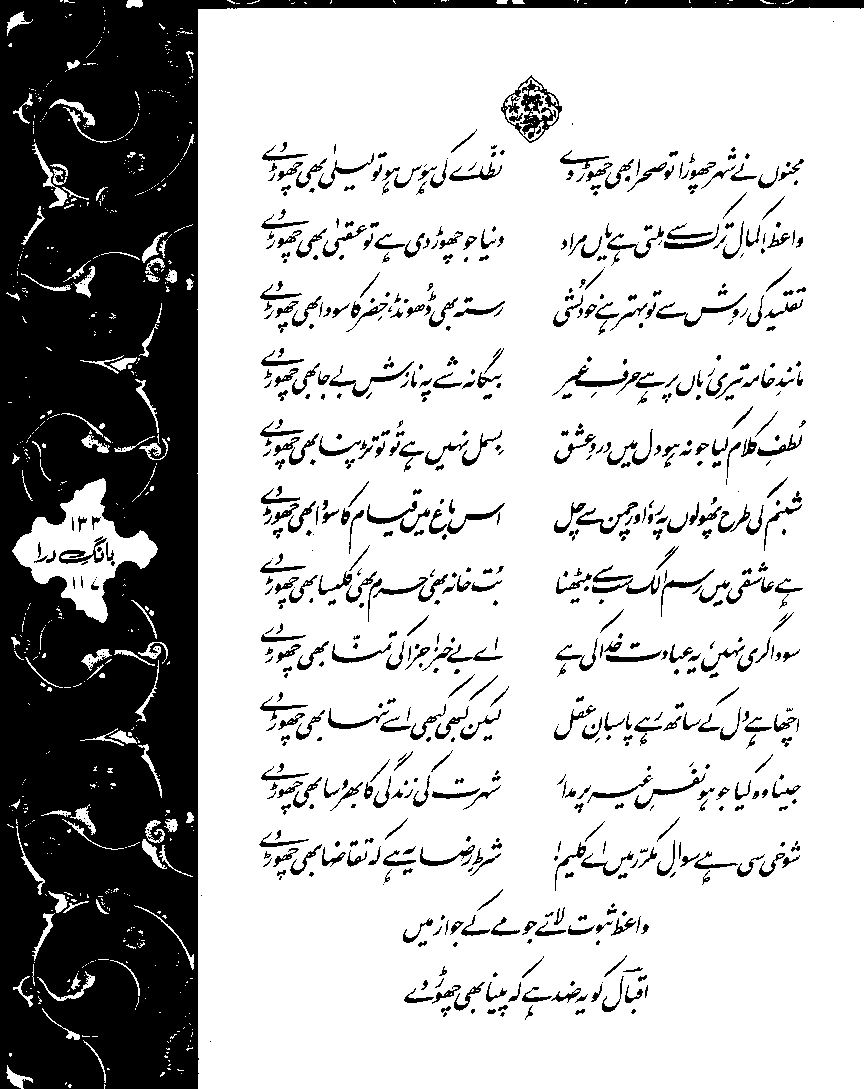 مجنوں نے شہر چھوڑا تو صحرا بھی چھوڑ دے نظّارے کی ہوس ہو تو لیلیٰ بھی چھوڑ دے
واعظ! کمالِ ترک سے ملتی ہے یاں مراد دنیا جو چھوڑ دی ہے تو عقبیٰ بھی چھوڑ دے
تقلید کی روش سے تو بہتر ہے خودکُشی رستہ بھی ڈھونڈ، خضر کا سودا بھی چھوڑ دے
مانندِ خامہ تیری زباں پر ہے حرفِ غیر بیگانہ شے پہ نازشِ بے جا بھی چھوڑ دے
لُطفِ کلام کیا جو نہ ہو دل میں دردِ عشق بسمل نہیں ہے تُو تو تڑپنا بھی چھوڑ دے
شبنم کی طرح پھُولوں پہ رو، اور چمن سے چل اس باغ میں قیام کا سودا بھی چھوڑ دے
ہے عاشقی میں رسم الگ سب سے بیٹھنا بُت خانہ بھی، حرم بھی، کلیسا بھی چھوڑ دے
سوداگری نہیں، یہ عبادت خدا کی ہے اے بے خبر! جزا کی تمنّا بھی چھوڑ دے
اچھّا ہے دل کے ساتھ رہے پاسبانِ عقل لیکن کبھی کبھی اسے تنہا بھی چھوڑ دے
جینا وہ کیا جو ہو نفَسِ غیر پر مدار شہرت کی زندگی کا بھروسا بھی چھوڑ دے
شوخی سی ہے سوالِ مکرّر میں اے کلیم! شرطِ رضا یہ ہے کہ تقاضا بھی چھوڑ دے
واعظ ثبوت لائے جو مے کے جواز میں
اقبالؔ کو یہ ضد ہے کہ پینا بھی چھوڑ دے
۱۳۳
بانگِ درا
۱۱۷